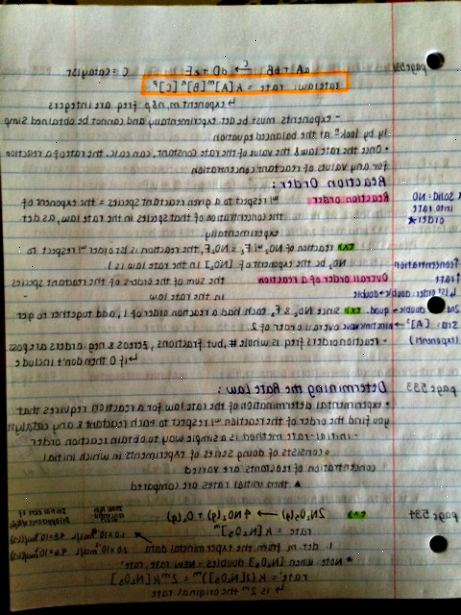 page 531
aA + bB →(C) dD + eE   C = catalyst
rate (law): rate = k[A]^m[B]^n[C]^p
↳ exponent m, n, & p freq. are integers
- exponents must be det. experimentally and cannot be obtained simp
ly by look^g at the balanced equation
• Once the rate law & the value of the rate constant, can calc. the rate of a reaction
for any values of reactant concentration
Reaction Order:
Reaction order w/ respect to a given reactant species = the exponent of
the concentration of that species in the rate law, as det
experimentally
* Solid: NO
into rate
order ★
ex> reaction of NO₂ w/ F₂ → NO₂F, the reaction is 1st order w/ respect to
NO₂ bc the exponent of [NO₂] in the rate law is 1
Overall order of a reaction the sum of the orders of the reactant species
in the rate law
ex> since NO₂ & F₂ each had a reaction order of 1, add together to get
overall order of 2
- reaction order is freq. is whole #, but fractions, zeros & neg. orders are poss
↳ if 0 then don't include
concentration
rate
1st order: double → double
2nd: double → quad.
(exponent)
page 533
Determining the Rate Law:
• experimental determination of the rate law for a reaction requires that
you find the order of the reaction w/ respect to each reactant & any catalyst
- initial-rate method is a simple way to obtain reaction order
consists of doing series of experiments in which initial
concentration of reactants are varied
▲ then initial rates are compared
page 534
ex> 2N₂O₅(g) → 4NO₂(g) + O₂(g)
rate = k[N₂O₅]^m
1. det. m from the experimental data
* Note: when [N₂O₅] doubles → New rate, rate'
rate' = k(2[N₂O₅])^m = 2^m k[N₂O₅]^m
↳ is 2^m the original rate